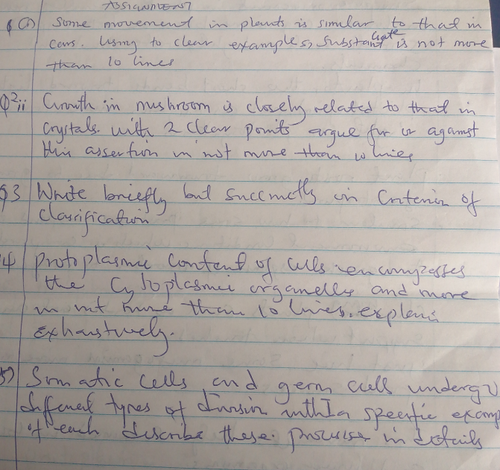 ASSIGNMENT
Q (1) Some movement in plants is similar to that in
cars. Using to clear examples, Substantiate is not more
than 10 lines
Q2ii Growth in mushroom is closely related to that in
crystals with 2 clear points argue for or against
this assertion in not more than 10 lines
Q3 Write briefly but succinctly on Criterion of
classification
4 protoplasmic content of cells encompasses
the Cytoplasmic organelles and more
in not more than 10 lines. explain
exhaustively.
5) Somatic cells and germ cells undergo
different types of division with 1 specific examp
of each describe these process in details